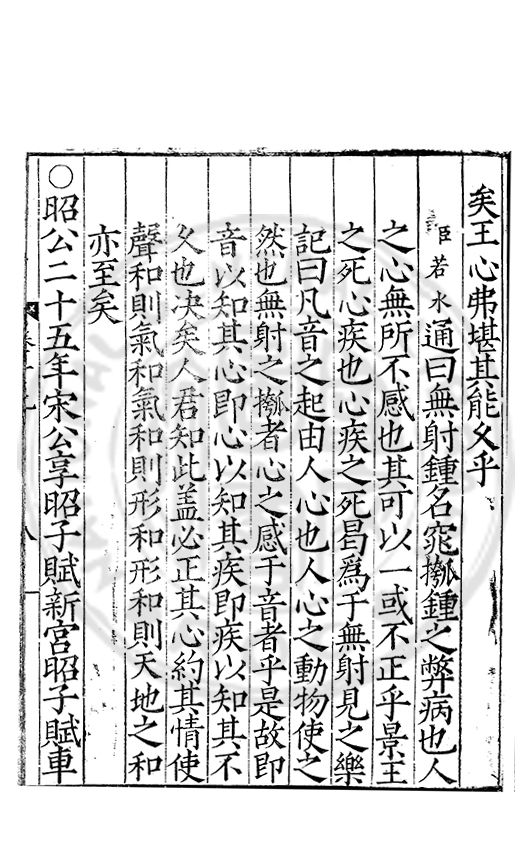 矣王心弗堪其能久乎
臣若水通曰無射鍾名窕摦鍾之弊病也人
之心無所不感也其可以一或不正乎景王
之死心疾也心疾之死曷爲于無射見之樂
記曰凡音之起由人心也人心之動物使之
然也無射之摦者心之感于音者乎是故即
音以知其心即心以知其疾即疾以知其不
久也决矣人君知此盖必正其心約其情使
聲和則氣和氣和則形和形和則天地之和
亦至矣
○昭公二十五年宋公享昭子賦新宮昭子賦車